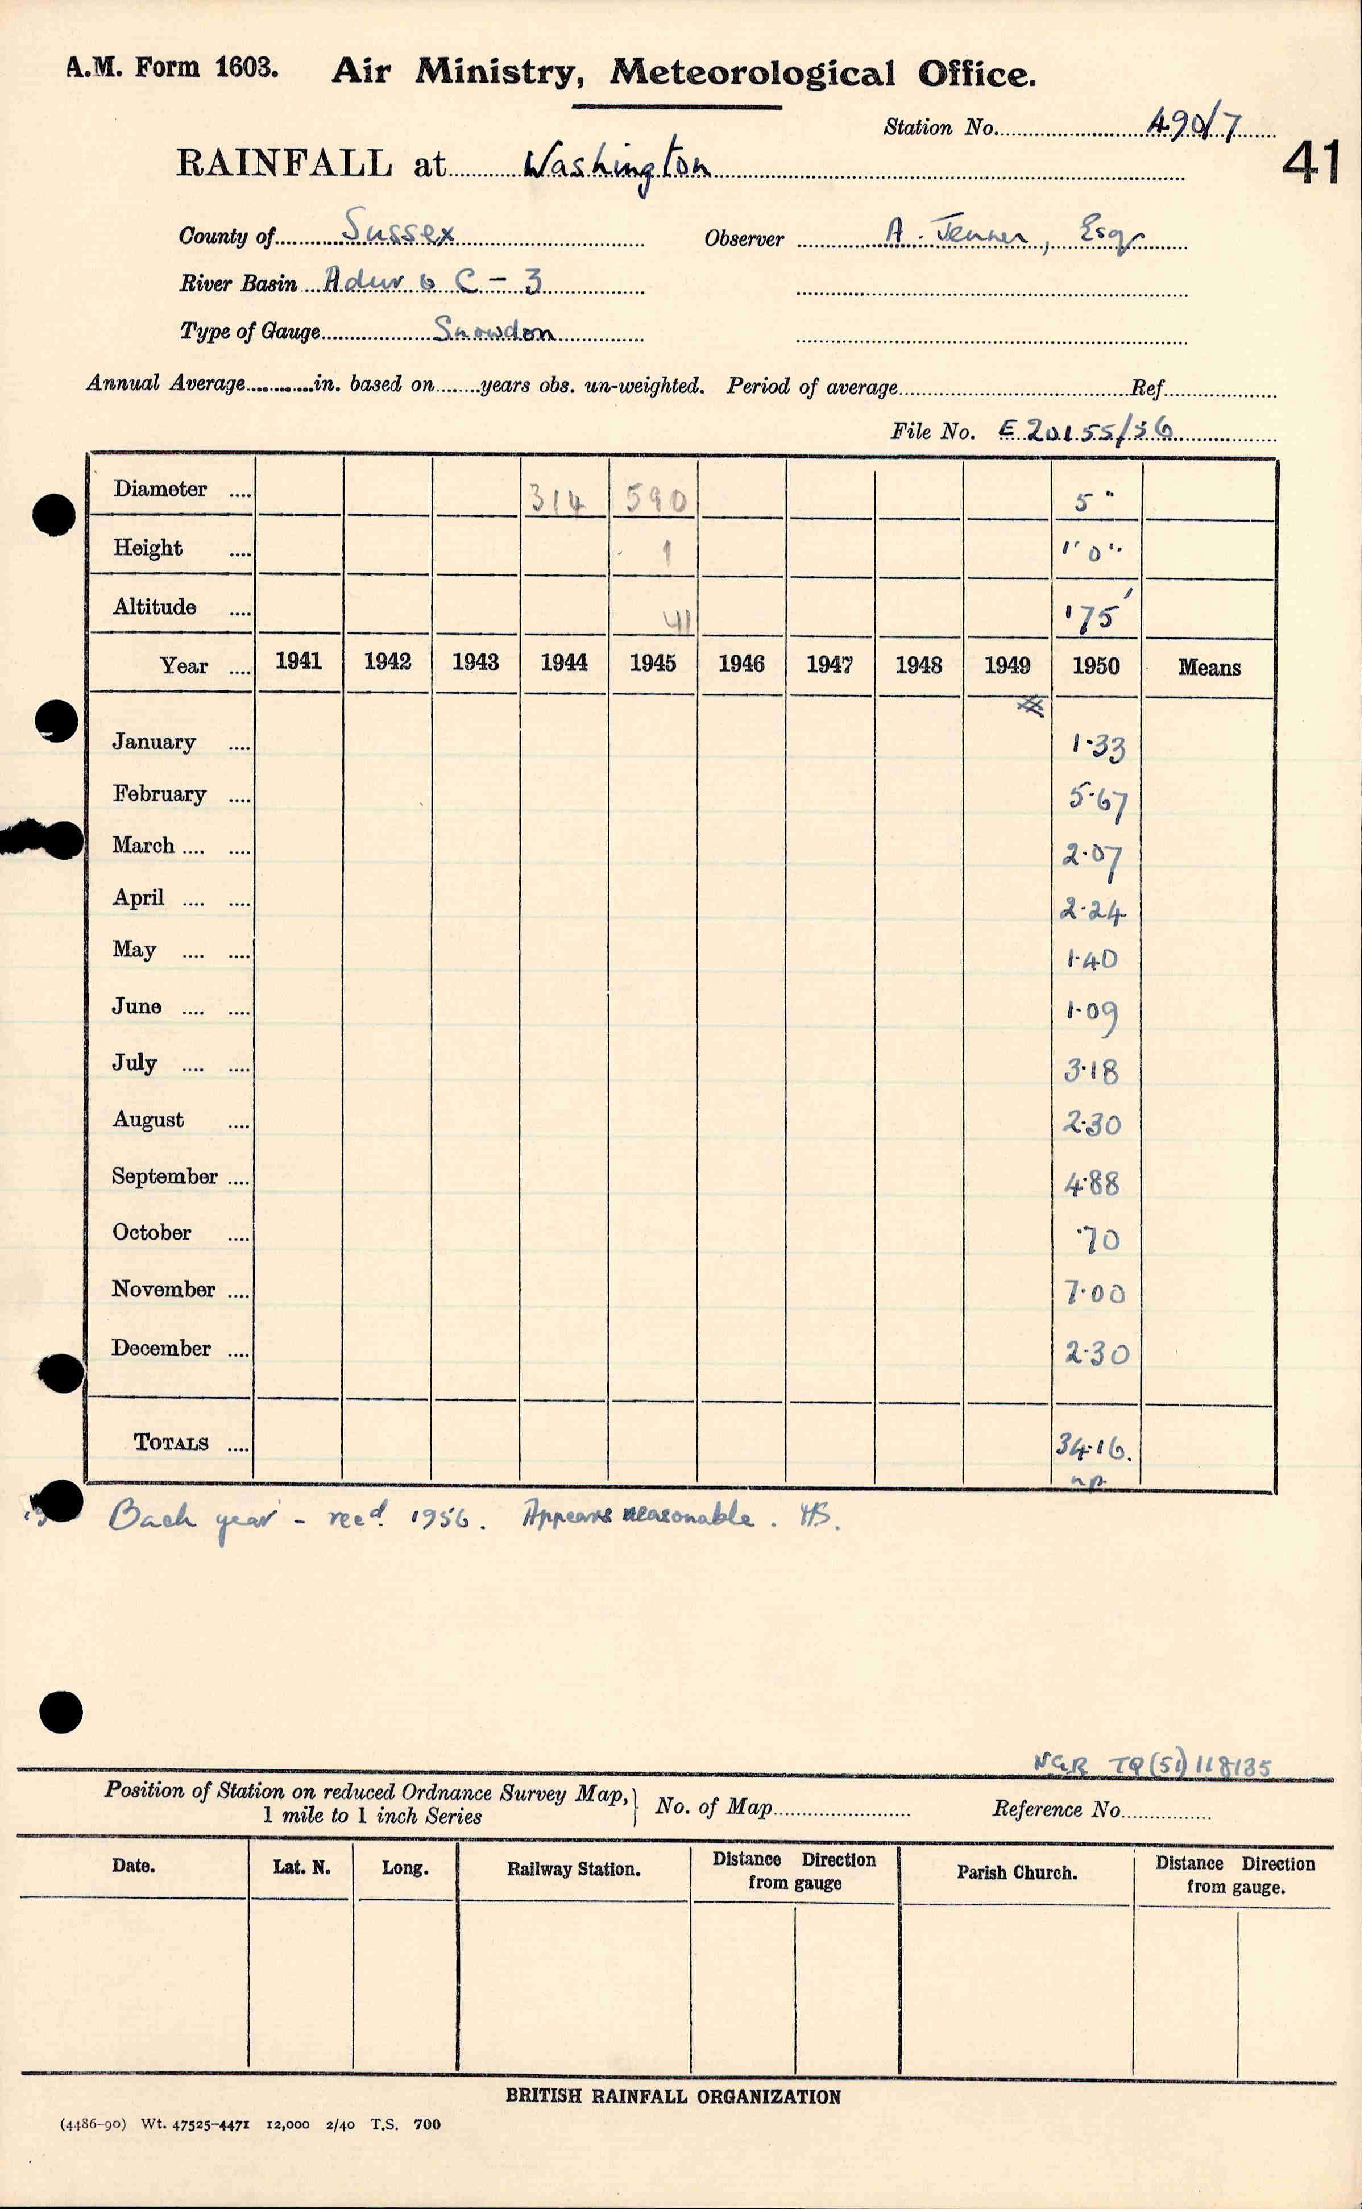 A.M. Form 1603. Air Ministry, Meteorological Office.
Station No. 490/7
RAINFALL at Washington
41
County of Sussex Observer A. Jenner, Esq
River Basin Adur C - 3
Type of Gauge Snowdon
Annual Average............in. based on........years obs. un-weighted. Period of average........Ref........
File No. E 20155/56
Diameter .... 314 590 5"
Height .... 1 1' 0"
Altitude .... 41 175'
Year .... 1941 1942 1943 1944 1945 1946 1947 1948 1949 1950 Means
January .... 1.33
February .... 5.67
March .... .... 2.07
April .... .... 2.24
May .... .... 1.40
June .... .... 1.09
July .... .... 3.18
August .... 2.30
September .... 4.88
October .... .70
November .... 7.00
December .... 2.30
TOTALS .... 34.16.
n.p.
Back year - recd. 1956. Appears reasonable. HB.
NGR TQ (51) 118135
Position of Station on reduced Ordnance Survey Map, } No. of Map........ Reference No........
1 mile to 1 inch Series
Date. Lat. N. Long. Railway Station. Distance Direction from gauge Parish Church. Distance Direction from gauge.
BRITISH RAINFALL ORGANIZATION
(4486-90) Wt. 47525-4471 12,000 2/40 T.S. 700